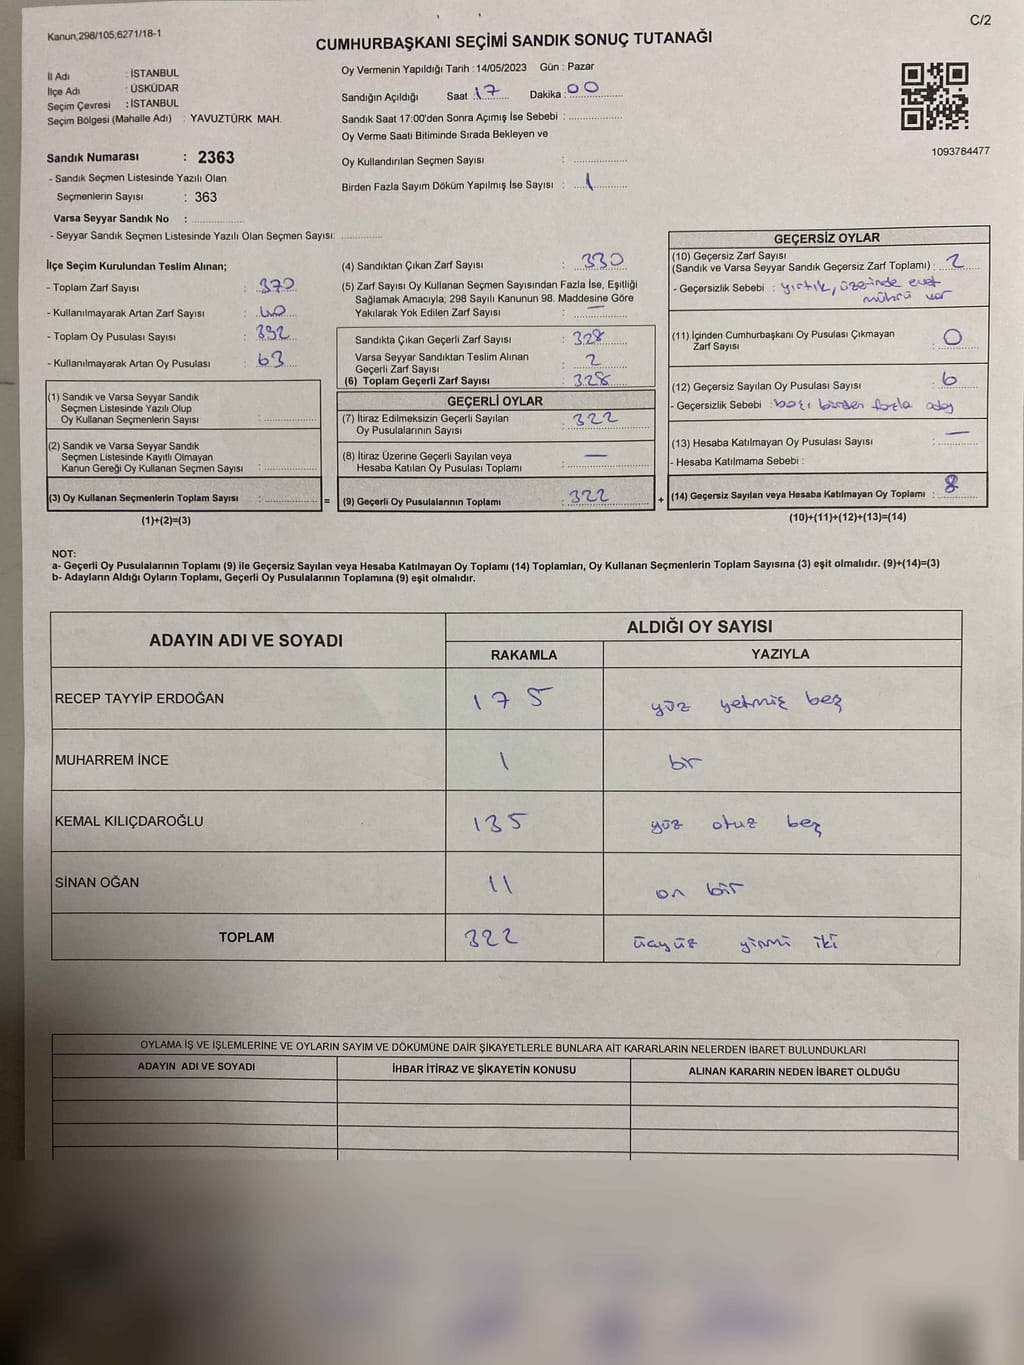 C/2
Kanun,298/105;6271/18-1
CUMHURBAŞKANI SEÇİMİ SANDIK SONUÇ TUTANAĞI
İl Adı : İSTANBUL
İlçe Adı : ÜSKÜDAR
Seçim Çevresi : İSTANBUL
Seçim Bölgesi (Mahalle Adı) : YAVUZTÜRK MAH.
Sandık Numarası : 2363
- Sandık Seçmen Listesinde Yazılı Olan
Seçmenlerin Sayısı : 363
Varsa Seyyar Sandık No :
- Seyyar Sandık Seçmen Listesinde Yazılı Olan Seçmen Sayısı:
Oy Vermenin Yapıldığı Tarih : 14/05/2023 Gün : Pazar
Sandığın Açıldığı Saat : 17 Dakika : 00
Sandık Saat 17:00'den Sonra Açımış İse Sebebi :
Oy Verme Saati Bitiminde Sırada Bekleyen ve
Oy Kullandırılan Seçmen Sayısı :
Birden Fazla Sayım Döküm Yapılmış İse Sayısı : 1
1093784477
İlçe Seçim Kurulundan Teslim Alınan;
- Toplam Zarf Sayısı : 370
- Kullanılmayarak Artan Zarf Sayısı : 40
- Toplam Oy Pusulası Sayısı : 392
- Kullanılmayarak Artan Oy Pusulası : 63
(1) Sandık ve Varsa Seyyar Sandık
Seçmen Listesinde Yazılı Olup
Oy Kullanan Seçmenlerin Sayısı :
(2) Sandık ve Varsa Seyyar Sandık
Seçmen Listesinde Kayıtlı Olmayan
Kanun Gereği Oy Kullanan Seçmen Sayısı :
(3) Oy Kullanan Seçmenlerin Toplam Sayısı : =
(1)+(2)=(3)
(4) Sandıktan Çıkan Zarf Sayısı : 330
(5) Zarf Sayısı Oy Kullanan Seçmen Sayısından Fazla İse, Eşitliği
Sağlamak Amacıyla; 298 Sayılı Kanunun 98. Maddesine Göre
Yakılarak Yok Edilen Zarf Sayısı : —
Sandıkta Çıkan Geçerli Zarf Sayısı : 328
Varsa Seyyar Sandıktan Teslim Alınan
Geçerli Zarf Sayısı : 2
(6) Toplam Geçerli Zarf Sayısı : 328
GEÇERLİ OYLAR
(7) İtiraz Edilmeksizin Geçerli Sayılan
Oy Pusulalarının Sayısı : 322
(8) İtiraz Üzerine Geçerli Sayılan veya
Hesaba Katılan Oy Pusulası Toplamı : —
(9) Geçerli Oy Pusulalarının Toplamı : 322 +
GEÇERSİZ OYLAR
(10) Geçersiz Zarf Sayısı
(Sandık ve Varsa Seyyar Sandık Geçersiz Zarf Toplamı) : 2
- Geçersizlik Sebebi : yırtık, üzerinde evet
mührü var
(11) İçinden Cumhurbaşkanı Oy Pusulası Çıkmayan
Zarf Sayısı : 0
(12) Geçersiz Sayılan Oy Pusulası Sayısı : 6
- Geçersizlik Sebebi : boş, birden fazla aday
(13) Hesaba Katılmayan Oy Pusulası Sayısı : —
- Hesaba Katılmama Sebebi :
(14) Geçersiz Sayılan veya Hesaba Katılmayan Oy Toplamı : 8
(10)+(11)+(12)+(13)=(14)
NOT:
a- Geçerli Oy Pusulalarının Toplamı (9) ile Geçersiz Sayılan veya Hesaba Katılmayan Oy Toplamı (14) Toplamları, Oy Kullanan Seçmenlerin Toplam Sayısına (3) eşit olmalıdır. (9)+(14)=(3)
b- Adayların Aldığı Oyların Toplamı, Geçerli Oy Pusulalarının Toplamına (9) eşit olmalıdır.
ADAYIN ADI VE SOYADI ALDIĞI OY SAYISI
RAKAMLA YAZIYLA
RECEP TAYYİP ERDOĞAN 175 yüz yetmiş beş
MUHARREM İNCE 1 bir
KEMAL KILIÇDAROĞLU 135 yüz otuz beş
SİNAN OĞAN 11 on bir
TOPLAM 322 üçyüz yirmi iki
OYLAMA İŞ VE İŞLEMLERİNE VE OYLARIN SAYIM VE DÖKÜMÜNE DAİR ŞİKAYETLERLE BUNLARA AİT KARARLARIN NELERDEN İBARET BULUNDUKLARI
ADAYIN ADI VE SOYADI İHBAR İTİRAZ VE ŞİKAYETİN KONUSU ALINAN KARARIN NEDEN İBARET OLDUĞU